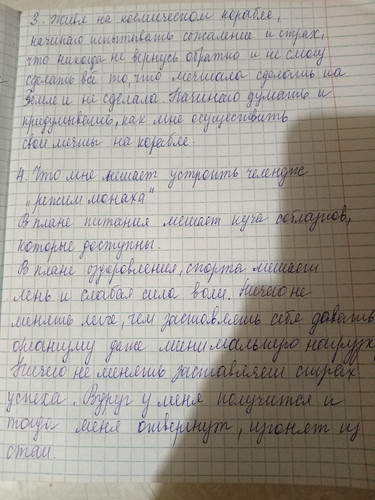 3. Живя на космическом корабле,
начинаю испытывать сожаление и страх,
что никогда не вернусь обратно и не смогу
сделать всё то, что мечтала сделать на
Земле и не сделала. Начинаю думать и
придумывать, как мне осуществить
свои мечты на корабле
4. Что мне мешает устроить челендж
„режим монаха"
В плане питания мешает куча соблазнов,
которые доступны.
В плане оздоровления, спорта мешает
лень и слабая сила воли. Ничего не
менять легче, чем заставлять себя давать
организму даже минимальную нагрузку
Ничего не менять заставляет страх
успеха. Вдруг у меня получится и
тогда меня отвергнут, изгонят из
стаи.